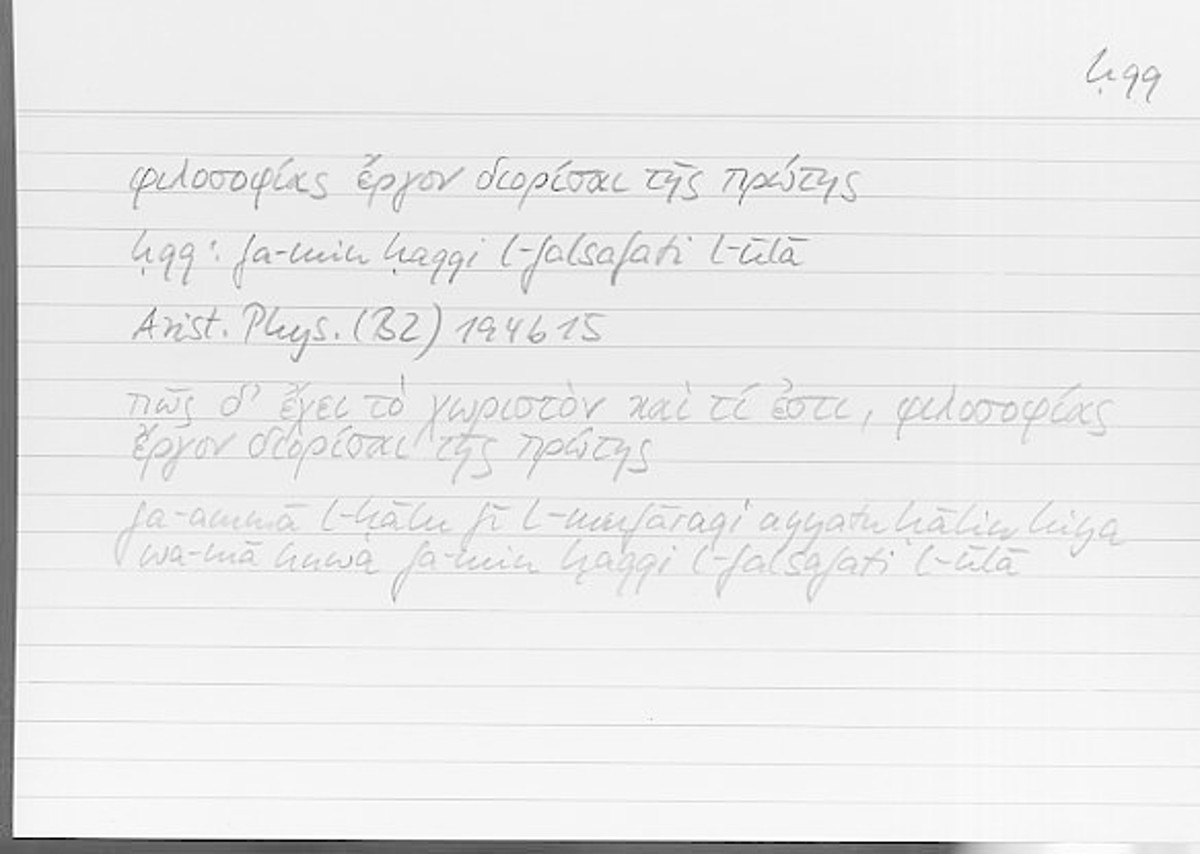 ḥqq
φιλοσοφίας ἔργον διορίσαι τῆς πρώτης
ḥqq: fa-min ḥaqqi l-falsafati l-ūlā
Arist. Phys. (B2) 194b15
πῶς δ' ἔχει τὸ χωριστὸν καὶ τί ἐστι, φιλοσοφίας
ἔργον διορίσαι τῆς πρώτης
fa-ammā l-ḥālu fī l-mufāraqi ayyatu ḥālin hiya
wa-mā huwa fa-min ḥaqqi l-falsafati l-ūlā